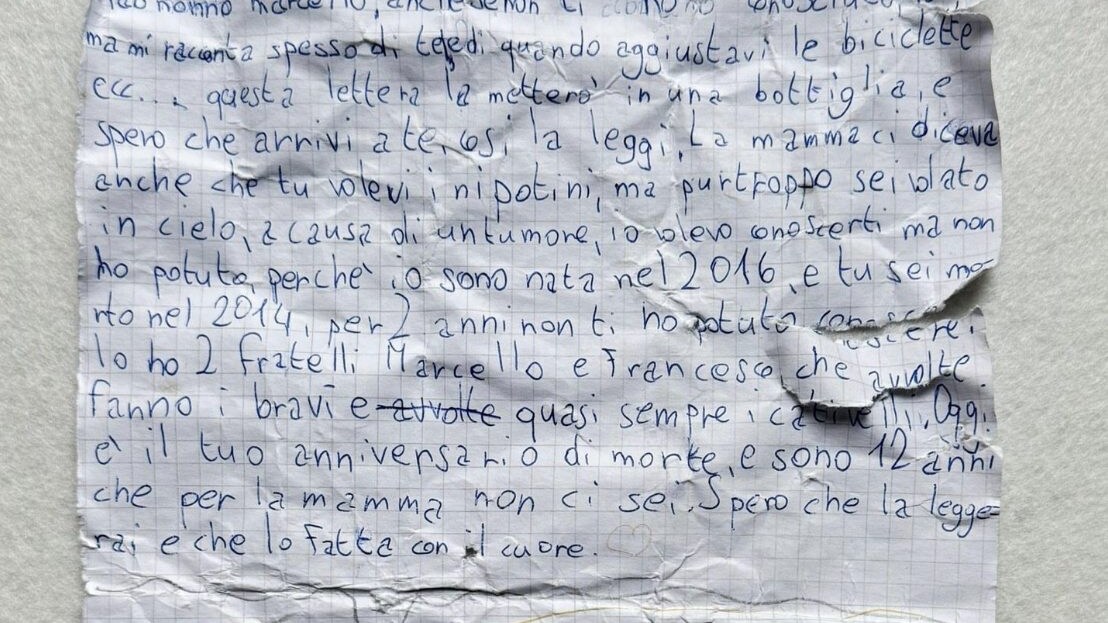 nonno Marcello, anche se non ti
ma mi racconta spesso di te e di quando aggiustavi le biciclette
ecc... questa lettera la metterò in una bottiglia, e
spero che arrivi a te, così la leggi. La mamma ci diceva
anche che tu volevi i nipotini, ma purtroppo sei volato
in cielo, a causa di un tumore, io volevo conoscerti ma non
ho potuto, perchè io sono nata nel 2016, e tu sei mo-
rto nel 2014, per 2 anni non ti ho potuto conoscere.
Io ho 2 fratelli Marcello e Francesco che avvolte
fanno i bravi e avvolte quasi sempre i cativelli. Oggi
è il tuo anniversario di morte, e sono 12 anni
che per la mamma non ci sei. Spero che la legge=
rai e che lo fatta con il cuore.